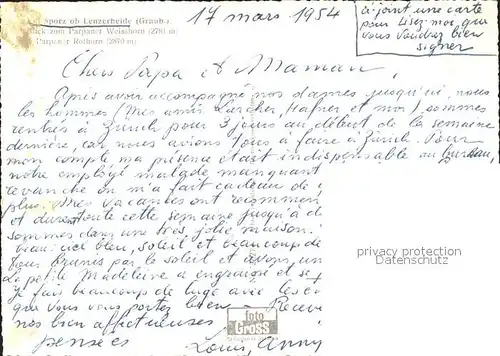 Sporz ob Lenzerheide (Graub.)
Blick zum Parpaner Weisshorn (2780 m)
Parpaner Rothorn (2870 m)
17 mars 1954
ci-joint une carte
pour Lisez-moi, que
vous voudrez bien
signer
Chers Papa et Maman,
Après avoir accompagné nos dames jusqu'ici, nous
les hommes (Mes amis Larcher, Hafner et moi) sommes
rentrés à Zürich pour 3 jours au début de la semaine
dernière, car nous avions tous à faire à Zürich. Pour
mon compte ma présence était indispensable au bureau,
notre employé malade manquant
revanche on m'a fait cadeau de
plus. Mes vacances ont
et durent toute cette semaine jusqu'à
sommes dans une très jolie maison.
beau: ciel bleu, soleil et beaucoup de
tous brunis par le soleil et avons un
La petite Madeleine a engraissé et se
Je fais beaucoup de luge avec les
que vous vous portez bien
nos bien affectueuses
pensées Louis, Anny
privacy protection
Datenschutz
foto
GROSS